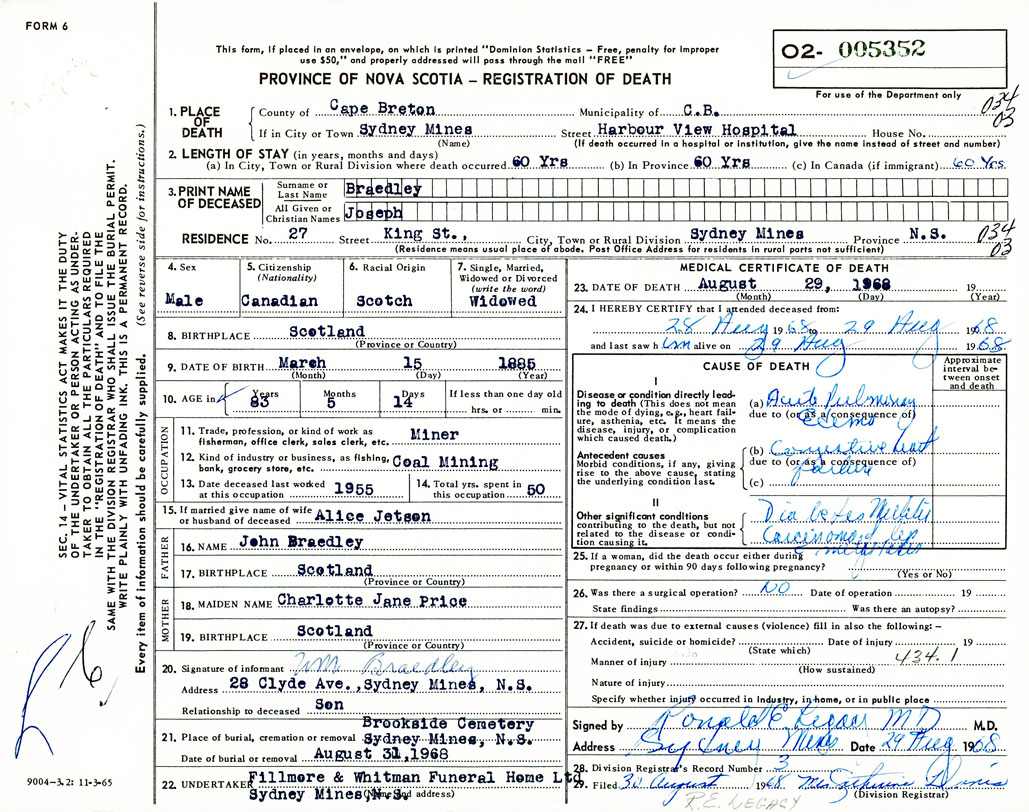 FORM 6
This form, if placed in an envelope, on which is printed "Dominion Statistics – Free, penalty for improper
use $50," and properly addressed will pass through the mail "FREE"
PROVINCE OF NOVA SCOTIA – REGISTRATION OF DEATH
02- 005352
For use of the Department only
SEC. 14 – VITAL STATISTICS ACT MAKES IT THE DUTY
OF THE UNDERTAKER OR PERSON ACTING AS UNDER-
TAKER TO OBTAIN ALL THE PARTICULARS REQUIRED
IN THE "REGISTRATION OF DEATH" AND TO FILE THE
SAME WITH THE DIVISION REGISTRAR WHO SHALL ISSUE THE BURIAL PERMIT.
WRITE PLAINLY WITH UNFADING INK. THIS IS A PERMANENT RECORD.
Every item of information should be carefully supplied. (See reverse side for instructions.)
1. PLACE OF DEATH County of Cape Breton Municipality of C.B. 034 03
If in City or Town Sydney Mines Street Harbour View Hospital House No.
(Name) (If death occurred in a hospital or institution, give the name instead of street and number)
2. LENGTH OF STAY (in years, months and days)
(a) In City, Town or Rural Division where death occurred 60 Yrs (b) In Province 60 Yrs (c) In Canada (if immigrant) 60 Yrs.
3. PRINT NAME OF DECEASED Surname or Last Name Braedley
All Given or Christian Names Joseph
RESIDENCE No. 27 Street King St., City, Town or Rural Division Sydney Mines Province N.S. 034 03
(Residence means usual place of abode. Post Office Address for residents in rural parts not sufficient)
4. Sex Male
5. Citizenship (Nationality) Canadian
6. Racial Origin Scotch
7. Single, Married, Widowed or Divorced (write the word) Widowed
8. BIRTHPLACE Scotland
(Province or Country)
9. DATE OF BIRTH March 15 1885
(Month) (Day) (Year)
10. AGE in Years 83 Months 5 Days 14 If less than one day old hrs. or min.
OCCUPATION
11. Trade, profession or kind of work as fisherman, office clerk, sales clerk, etc. Miner
12. Kind of industry or business, as fishing, bank, grocery store, etc. Coal Mining
13. Date deceased last worked at this occupation 1955
14. Total yrs. spent in this occupation 50
15. If married give name of wife or husband of deceased Alice Jetson
FATHER
16. NAME John Braedley
17. BIRTHPLACE Scotland
(Province or Country)
MOTHER
18. MAIDEN NAME Charlotte Jane Price
19. BIRTHPLACE Scotland
(Province or Country)
20. Signature of informant Wm Braedley
Address 28 Clyde Ave., Sydney Mines, N.S.
Relationship to deceased Son
21. Place of burial, cremation or removal Brookside Cemetery Sydney Mines, N.S.
Date of burial or removal August 31,1968
22. UNDERTAKER Fillmore & Whitman Funeral Home Ltd
Sydney Mines N.S. (Name and address)
9004-3.2: 11-3-65
MEDICAL CERTIFICATE OF DEATH
23. DATE OF DEATH August 29, 1968 19
(Month) (Day) (Year)
24. I HEREBY CERTIFY that I attended deceased from:
28 Aug 1968 to 29 Aug 1968
and last saw him alive on 29 Aug 1968
CAUSE OF DEATH
Approximate interval between onset and death
I
Disease or condition directly leading to death (This does not mean the mode of dying, e.g., heart failure, asthenia, etc. It means the disease, injury, or complication which caused death.)
(a) Acute pulmonary
due to (or as a consequence of)
edema
Antecedent causes
Morbid conditions, if any, giving rise to the above cause, stating the underlying condition last.
(b) Congestive heart
due to (or as a consequence of)
failure
(c)
II
Other significant conditions contributing to the death, but not related to the disease or condition causing it.
Diabetes Mellitus
Carcinoma of lip
metastases
25. If a woman, did the death occur either during pregnancy or within 90 days following pregnancy?
(Yes or No)
26. Was there a surgical operation? NO Date of operation 19
State findings Was there an autopsy?
27. If death was due to external causes (violence) fill in also the following: –
Accident, suicide or homicide? Date of injury 19
(State which)
434.1
Manner of injury
(How sustained)
Nature of injury
Specify whether injury occurred in industry, in home, or in public place
Signed by Ronald E Legacy MD M.D.
Address Sydney Mines Date 29 Aug 1968
28. Division Registrar's Record Number 3
29. Filed 30 August 1968
(Division Registrar)
R.E. LEGACY